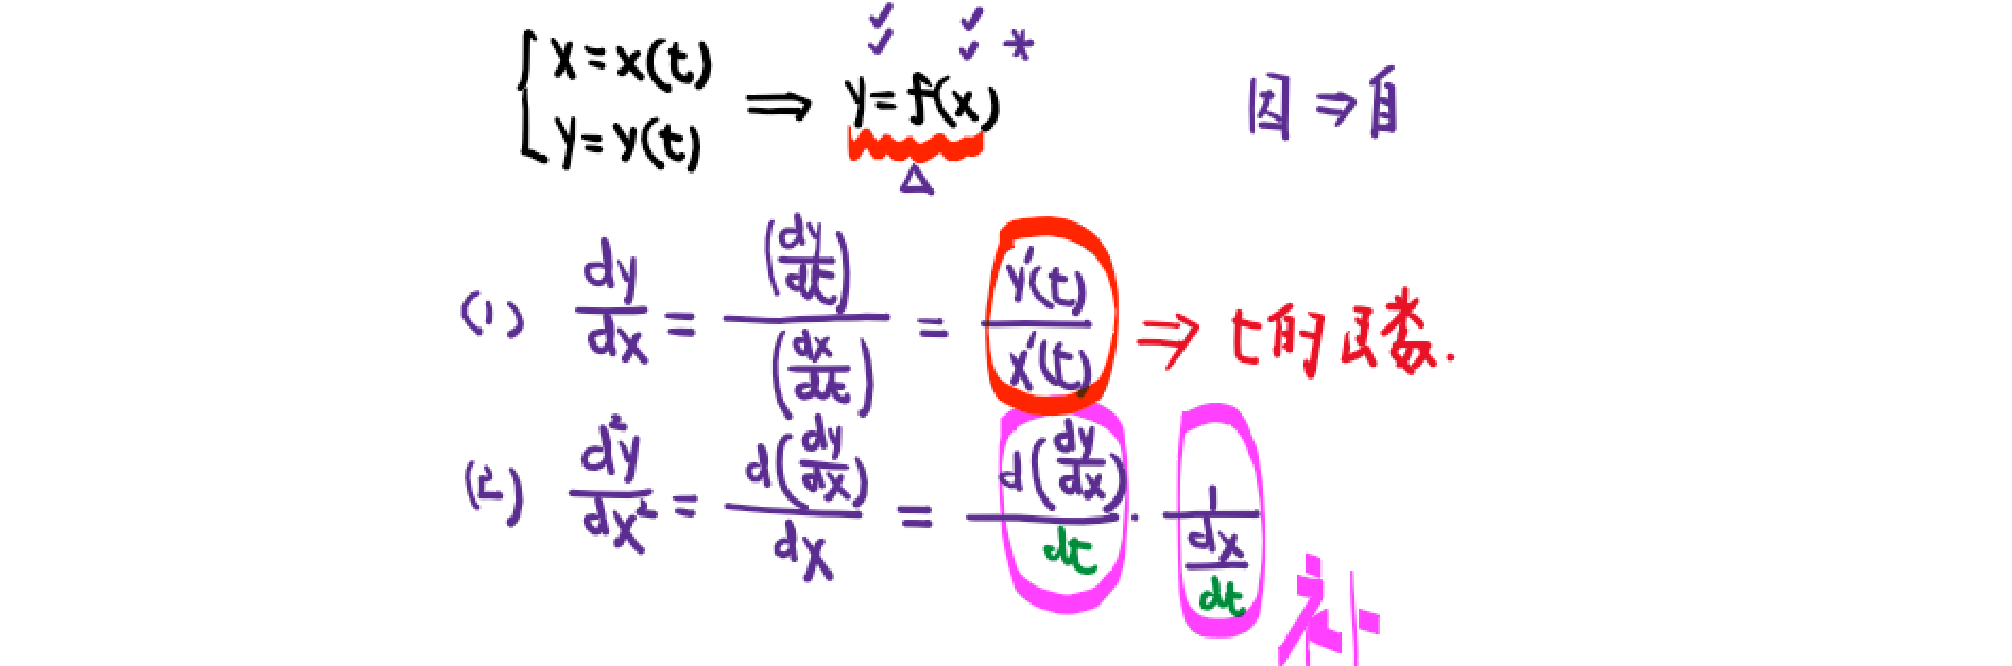 { x = x(t) y = y(t) ⇒ y = f(x) * 因 ⇒ 自
Δ
(1) dy/dx = (dy/dt)/(dx/dt) = y'(t)/x'(t) ⇒ t的函数.
(2) d²y/dx² = d(dy/dx)/dx = d(dy/dx)/dt · 1/(dx/dt) 补